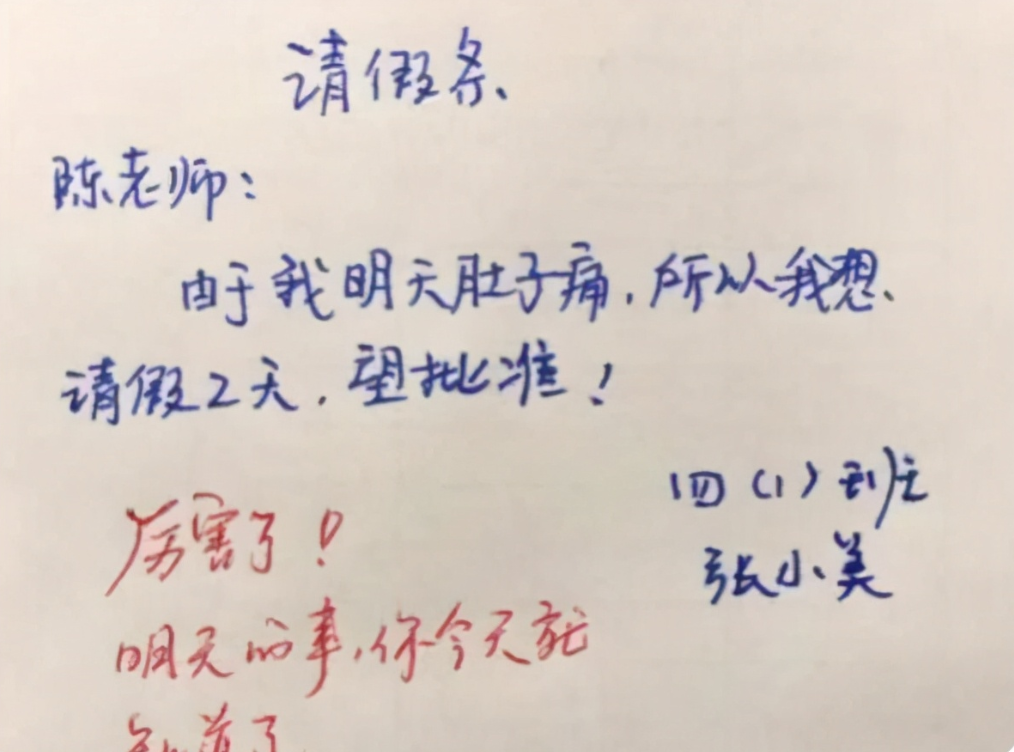 请假条
陈老师：
由于我明天肚子痛，所以我想
请假2天，望批准！
四（1）班
张小美
厉害了！
明天的事，你今天就
知道了